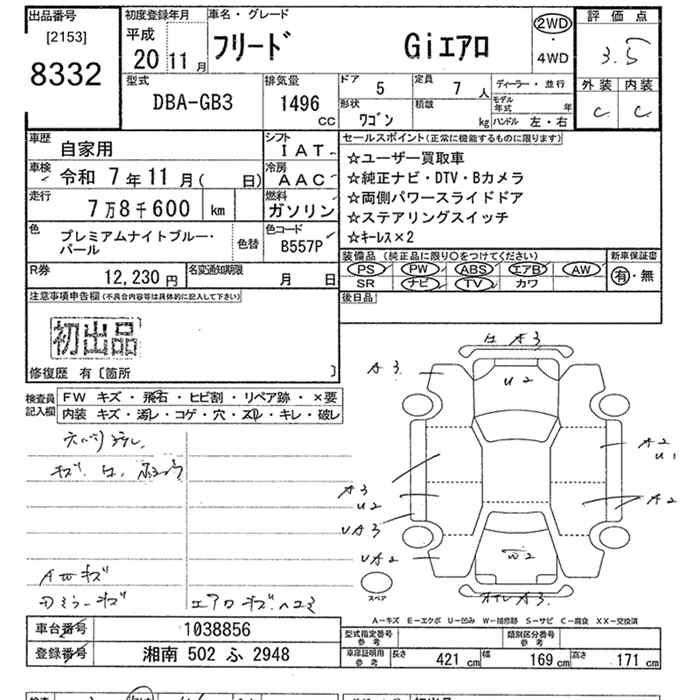 出品番号 [2153] 8332
初度登録年月 平成 20 11月
車名・グレード フリード Giエアロ
2WD ・ 4WD
評価点 3.5
外装 C 内装 C
型式 DBA-GB3
排気量 1496 CC
ドア 5 形状 ワゴン
定員 7 人 積載 kg
ディーラー・並行
モデル年式 年
ハンドル 左・右
車歴 自家用
シフト IAT
車検 令和 7年11月( 日)
冷房 AAC
走行 7万8千600 km
燃料 ガソリン
色 プレミアムナイトブルー・パール 色替
色コード B557P
R券 12,230 円
名変通知期限 月 日
セールスポイント(正常に機能するものに限ります)
☆ユーザー買取車
☆純正ナビ・DTV・Bカメラ
☆両側パワースライドドア
☆ステアリングスイッチ
☆キーレス×2
装備品(純正品に限り○をつけてください)
PS PW ABS エアB AW
SR ナビ TV カワ
新車保証書 有・無
後日品
注意事項申告欄(不具合内容等は具体的に記入して下さい)
初出品
修復歴 有〔箇所 〕
検査員記入欄
FW キズ・飛石・ヒビ割・リペア跡・×要
内装 キズ・汚レ・コゲ・穴・スレ・キレ・破レ
A3
A3
U2
A2
U1
A3
U2
A2
UA3
UA2
W2
A3
スペア
エアロキズ.ヘコミ
A-キズ E-エクボ U-凹み W-補修跡 S-サビ C-腐食 XX-交換済
車台番号 1038856
登録番号 湘南 502 ふ 2948
型式指定番号 参考
類別区分番号 参考
車庫証明用 参考 長さ 421 cm 幅 169 cm 高さ 171 cm